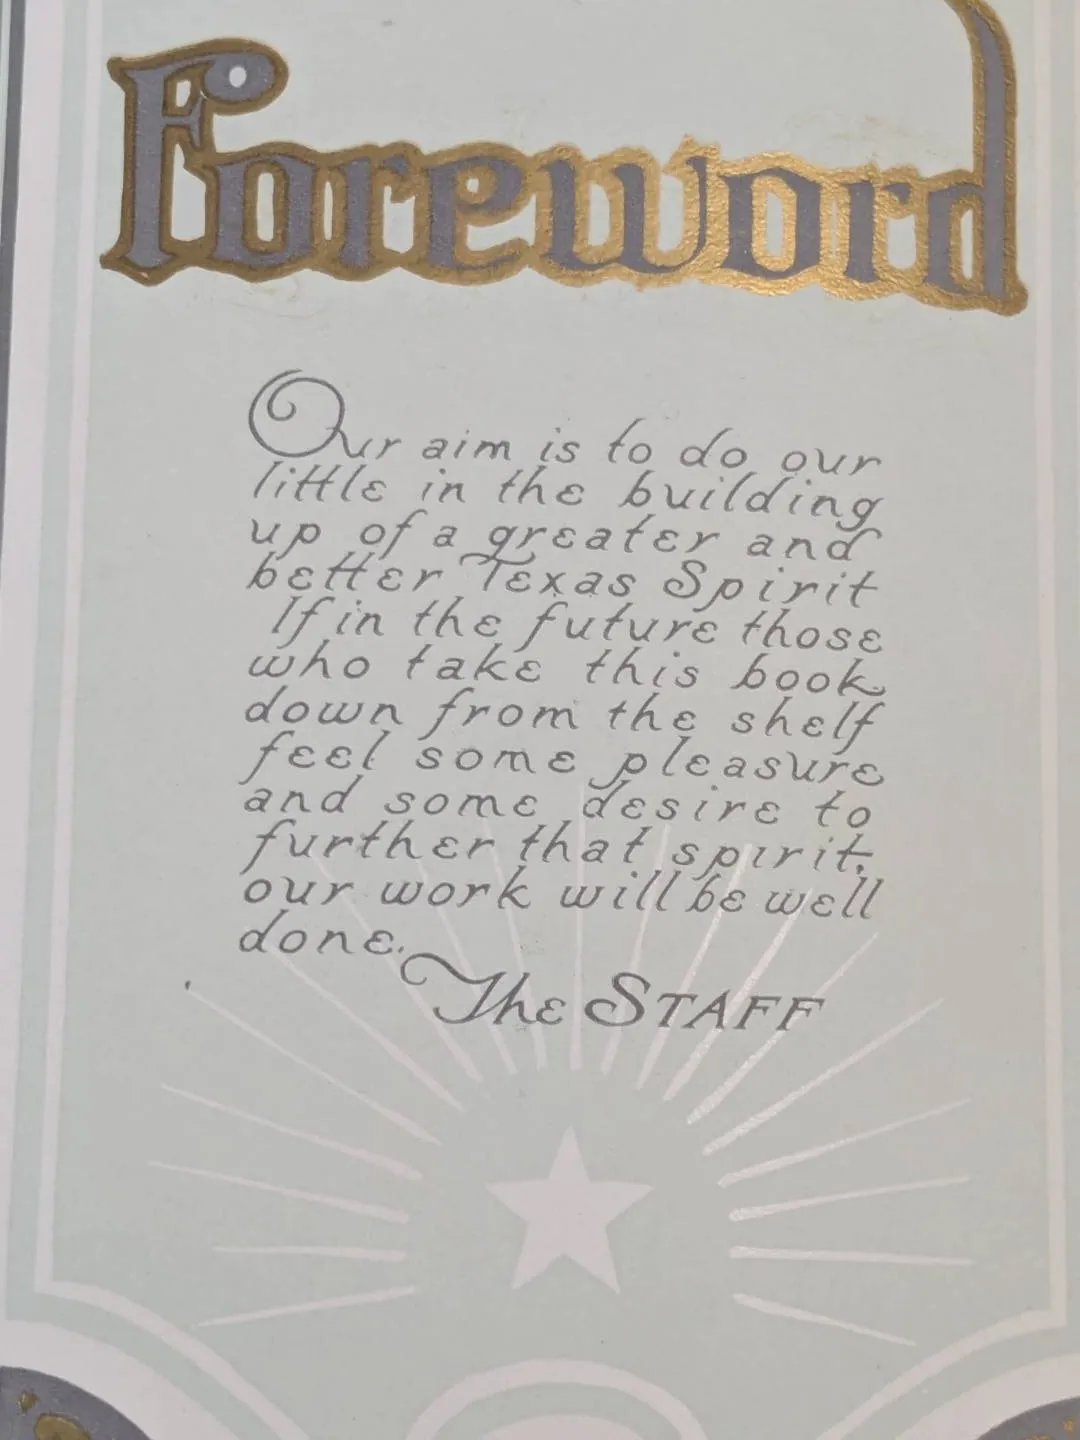 Foreword
Our aim is to do our
little in the building
up of a greater and
better Texas Spirit
If in the future those
who take this book
down from the shelf
feel some pleasure
and some desire to
further that spirit,
our work will be well
done.
The STAFF